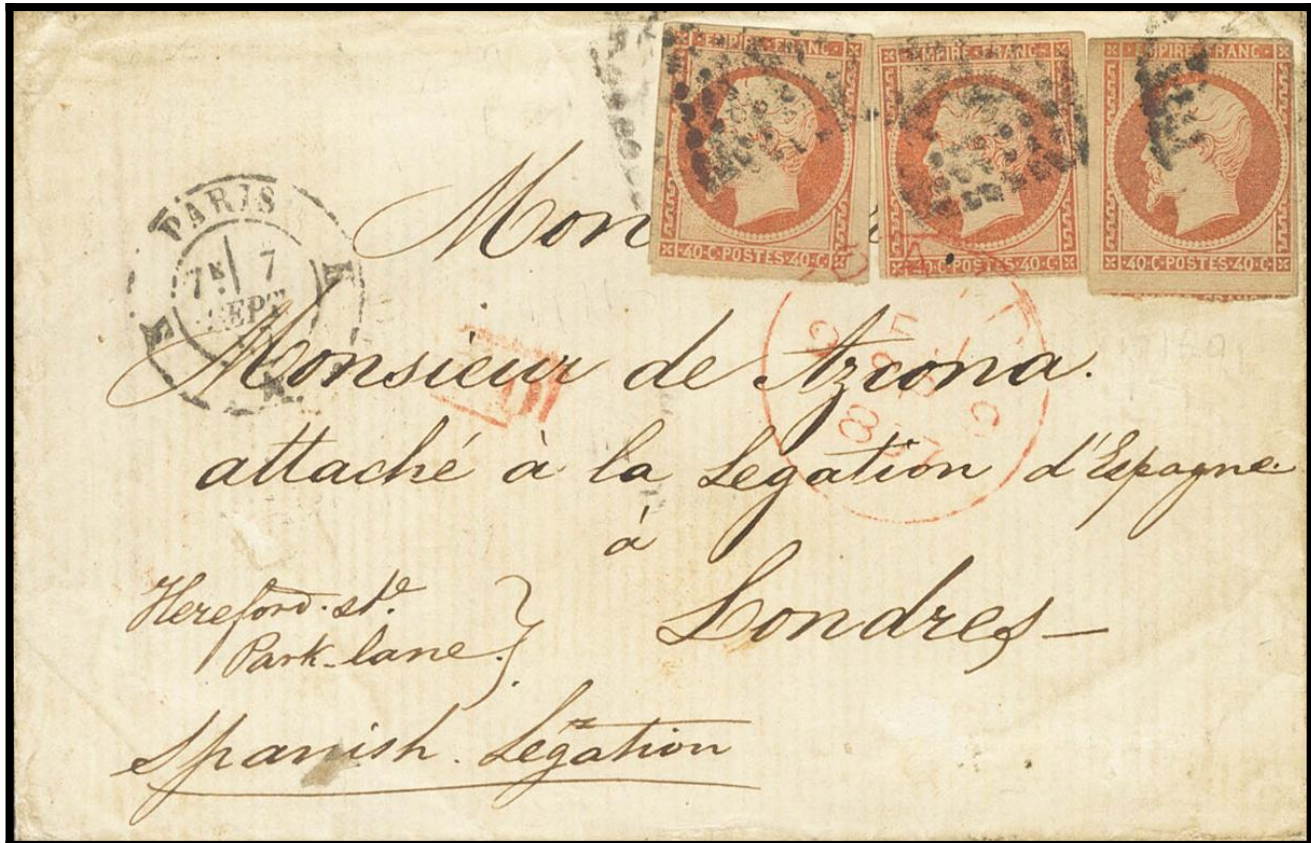 EMPIRE · FRANC · EMPIRE · FRANC · EMPIRE · FRANC ·
40·C·POSTES·40·C· 40·C·POSTES·40·C· 40·C·POSTES·40·C·
PARIS
7E 7
SEPT
Monsieur de Azcona.
attaché à la Legation d'Espagne
à
Londres
Hereford. st.
Park-lane.
Spanish. Légation